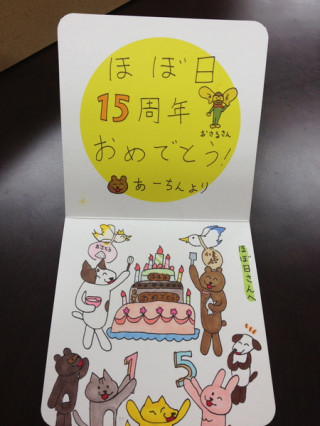 ほぼ日
15周年
おさるさん
おめでとう!
あーちんより
ほぼ日さんへ
15